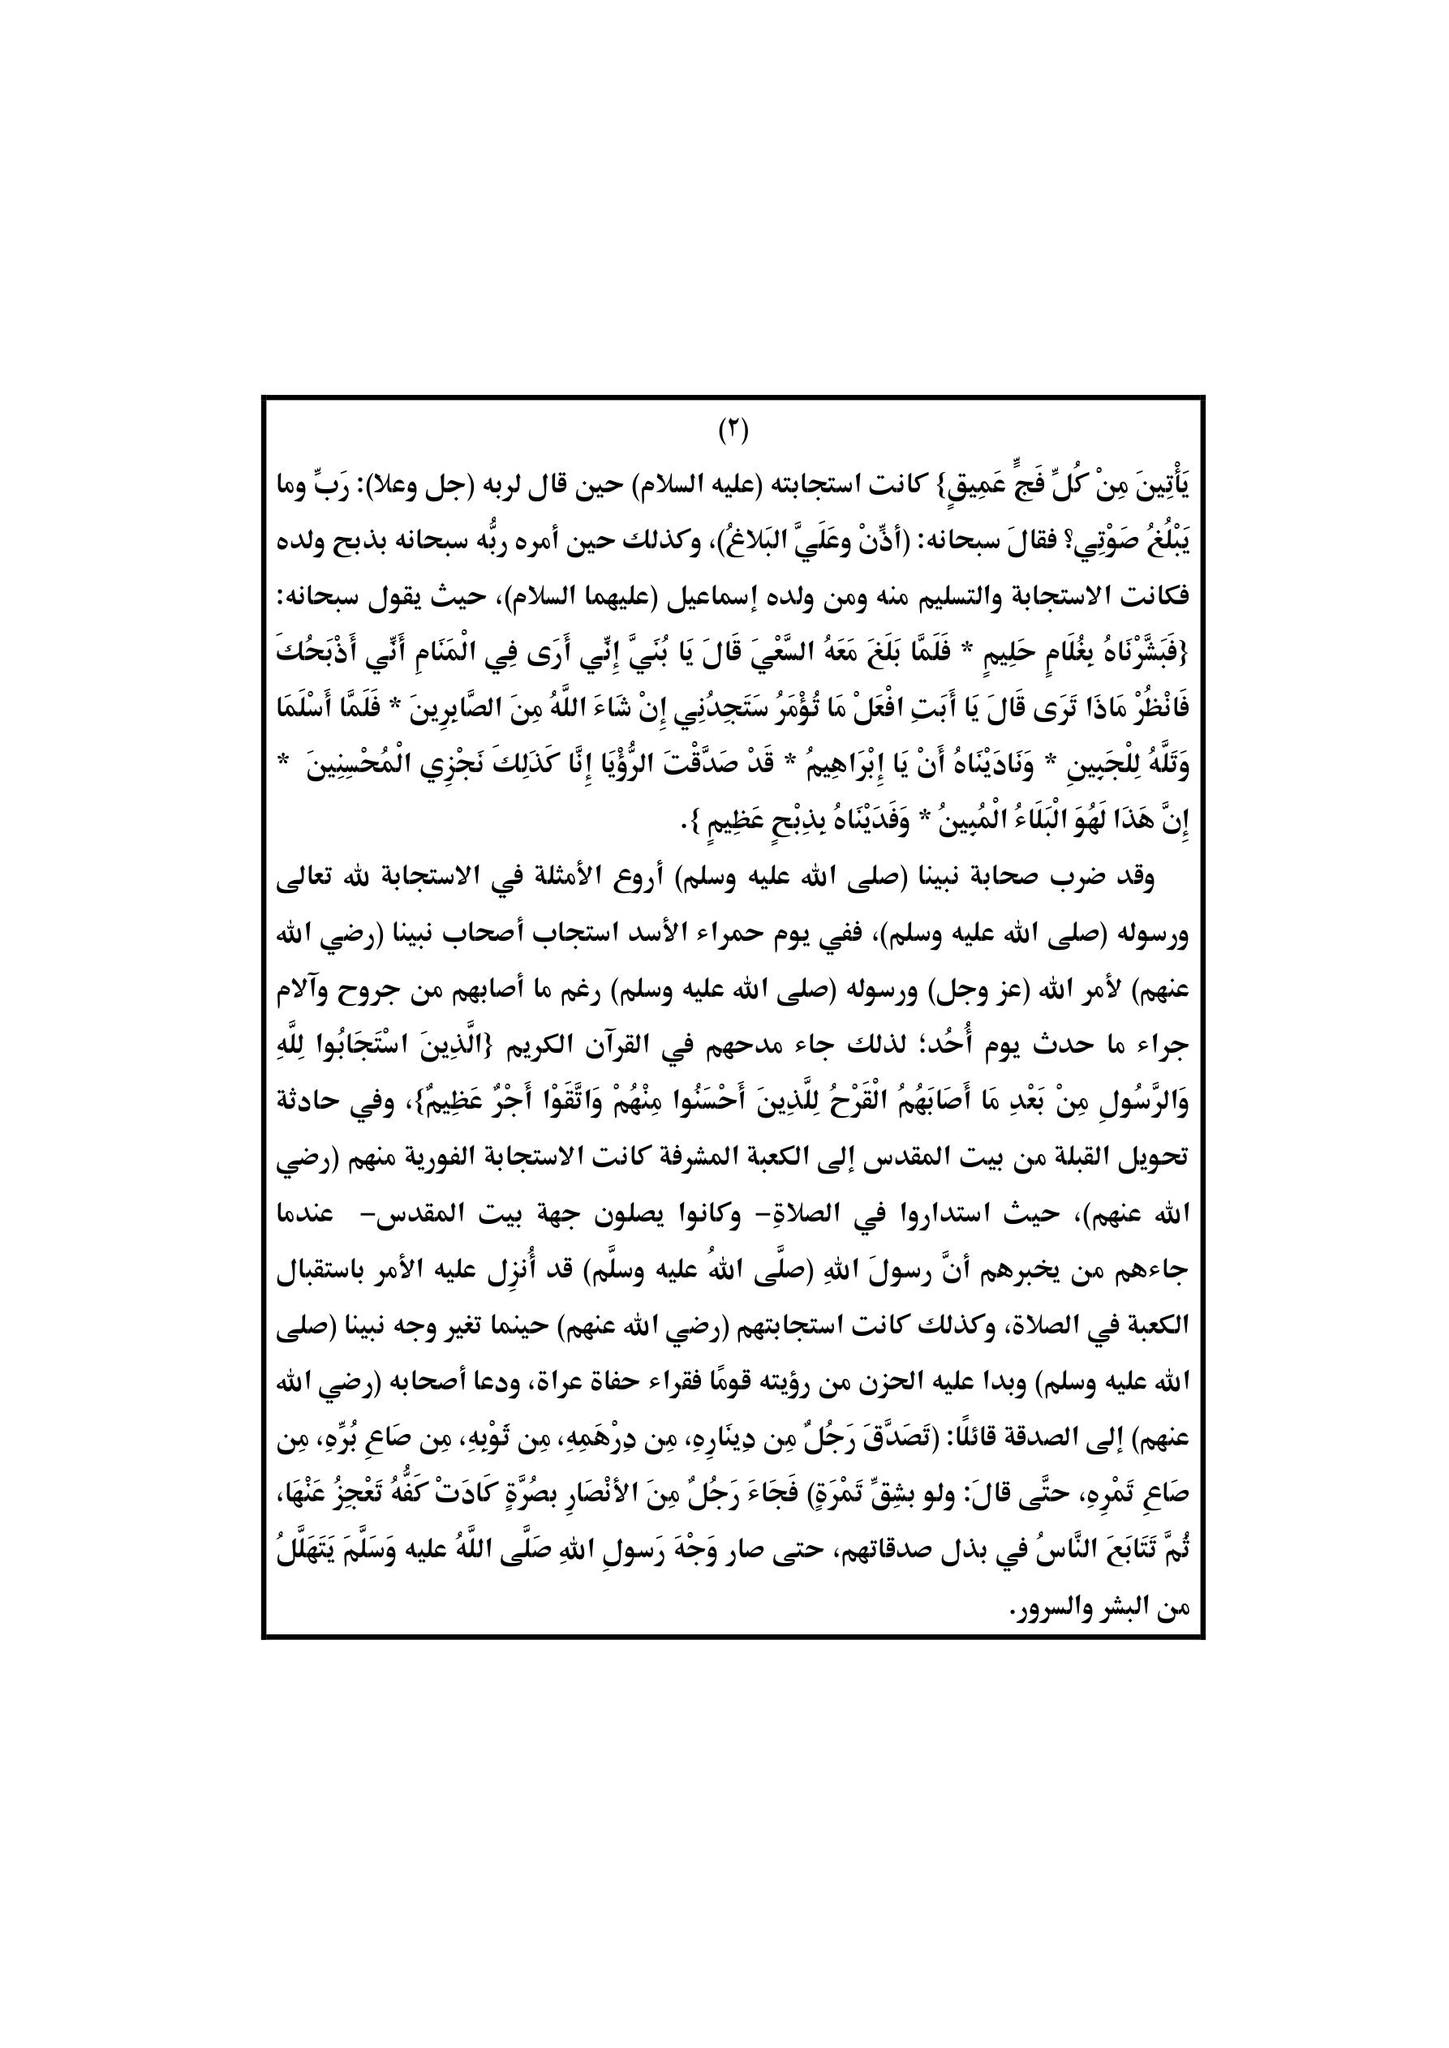 (٢)
يَأْتِينَ مِنْ كُلِّ فَجٍّ عَمِيقٍ} كانت استجابته (عليه السلام) حين قال لربه (جل وعلا): رَبِّ وما
يَبْلُغُ صَوْتِي؟ فقالَ سبحانه: (أذِّنْ وعَلَيَّ البَلاغُ)، وكذلك حين أمره ربُّه سبحانه بذبح ولده
فكانت الاستجابة والتسليم منه ومن ولده إسماعيل (عليهما السلام)، حيث يقول سبحانه:
{فَبَشَّرْنَاهُ بِغُلَامٍ حَلِيمٍ * فَلَمَّا بَلَغَ مَعَهُ السَّعْيَ قَالَ يَا بُنَيَّ إِنِّي أَرَى فِي الْمَنَامِ أَنِّي أَذْبَحُكَ
فَانْظُرْ مَاذَا تَرَى قَالَ يَا أَبَتِ افْعَلْ مَا تُؤْمَرُ سَتَجِدُنِي إِنْ شَاءَ اللَّهُ مِنَ الصَّابِرِينَ * فَلَمَّا أَسْلَمَا
وَتَلَّهُ لِلْجَبِينِ * وَنَادَيْنَاهُ أَنْ يَا إِبْرَاهِيمُ * قَدْ صَدَّقْتَ الرُّؤْيَا إِنَّا كَذَلِكَ نَجْزِي الْمُحْسِنِينَ *
إِنَّ هَذَا لَهُوَ الْبَلَاءُ الْمُبِينُ * وَفَدَيْنَاهُ بِذِبْحٍ عَظِيمٍ }.
وقد ضرب صحابة نبينا (صلى الله عليه وسلم) أروع الأمثلة في الاستجابة لله تعالى
ورسوله (صلى الله عليه وسلم)، ففي يوم حمراء الأسد استجاب أصحاب نبينا (رضي الله
عنهم) لأمر الله (عز وجل) ورسوله (صلى الله عليه وسلم) رغم ما أصابهم من جروح وآلام
جراء ما حدث يوم أُحُد؛ لذلك جاء مدحهم في القرآن الكريم {الَّذِينَ اسْتَجَابُوا لِلَّهِ
وَالرَّسُولِ مِنْ بَعْدِ مَا أَصَابَهُمُ الْقَرْحُ لِلَّذِينَ أَحْسَنُوا مِنْهُمْ وَاتَّقَوْا أَجْرٌ عَظِيمٌ}، وفي حادثة
تحويل القبلة من بيت المقدس إلى الكعبة المشرفة كانت الاستجابة الفورية منهم (رضي
الله عنهم)، حيث استداروا في الصلاةِ– وكانوا يصلون جهة بيت المقدس– عندما
جاءهم من يخبرهم أنَّ رسولَ اللهِ (صلَّى اللهُ عليه وسلَّم) قد أُنزِل عليه الأمر باستقبال
الكعبة في الصلاة، وكذلك كانت استجابتهم (رضي الله عنهم) حينما تغير وجه نبينا (صلى
الله عليه وسلم) وبدا عليه الحزن من رؤيته قومًا فقراء حفاة عراة، ودعا أصحابه (رضي الله
عنهم) إلى الصدقة قائلًا: (تَصَدَّقَ رَجُلٌ مِن دِينَارِهِ، مِن دِرْهَمِهِ، مِن ثَوْبِهِ، مِن صَاعِ بُرِّهِ، مِن
صَاعِ تَمْرِهِ، حتَّى قالَ: ولو بشِقِّ تَمْرَةٍ) فَجَاءَ رَجُلٌ مِنَ الأنْصَارِ بصُرَّةٍ كَادَتْ كَفُّهُ تَعْجِزُ عَنْهَا،
ثُمَّ تَتَابَعَ النَّاسُ في بذل صدقاتهم، حتى صار وَجْهَ رَسولِ اللهِ صَلَّى اللَّهُ عليه وَسَلَّمَ يَتَهَلَّلُ
من البشر والسرور.